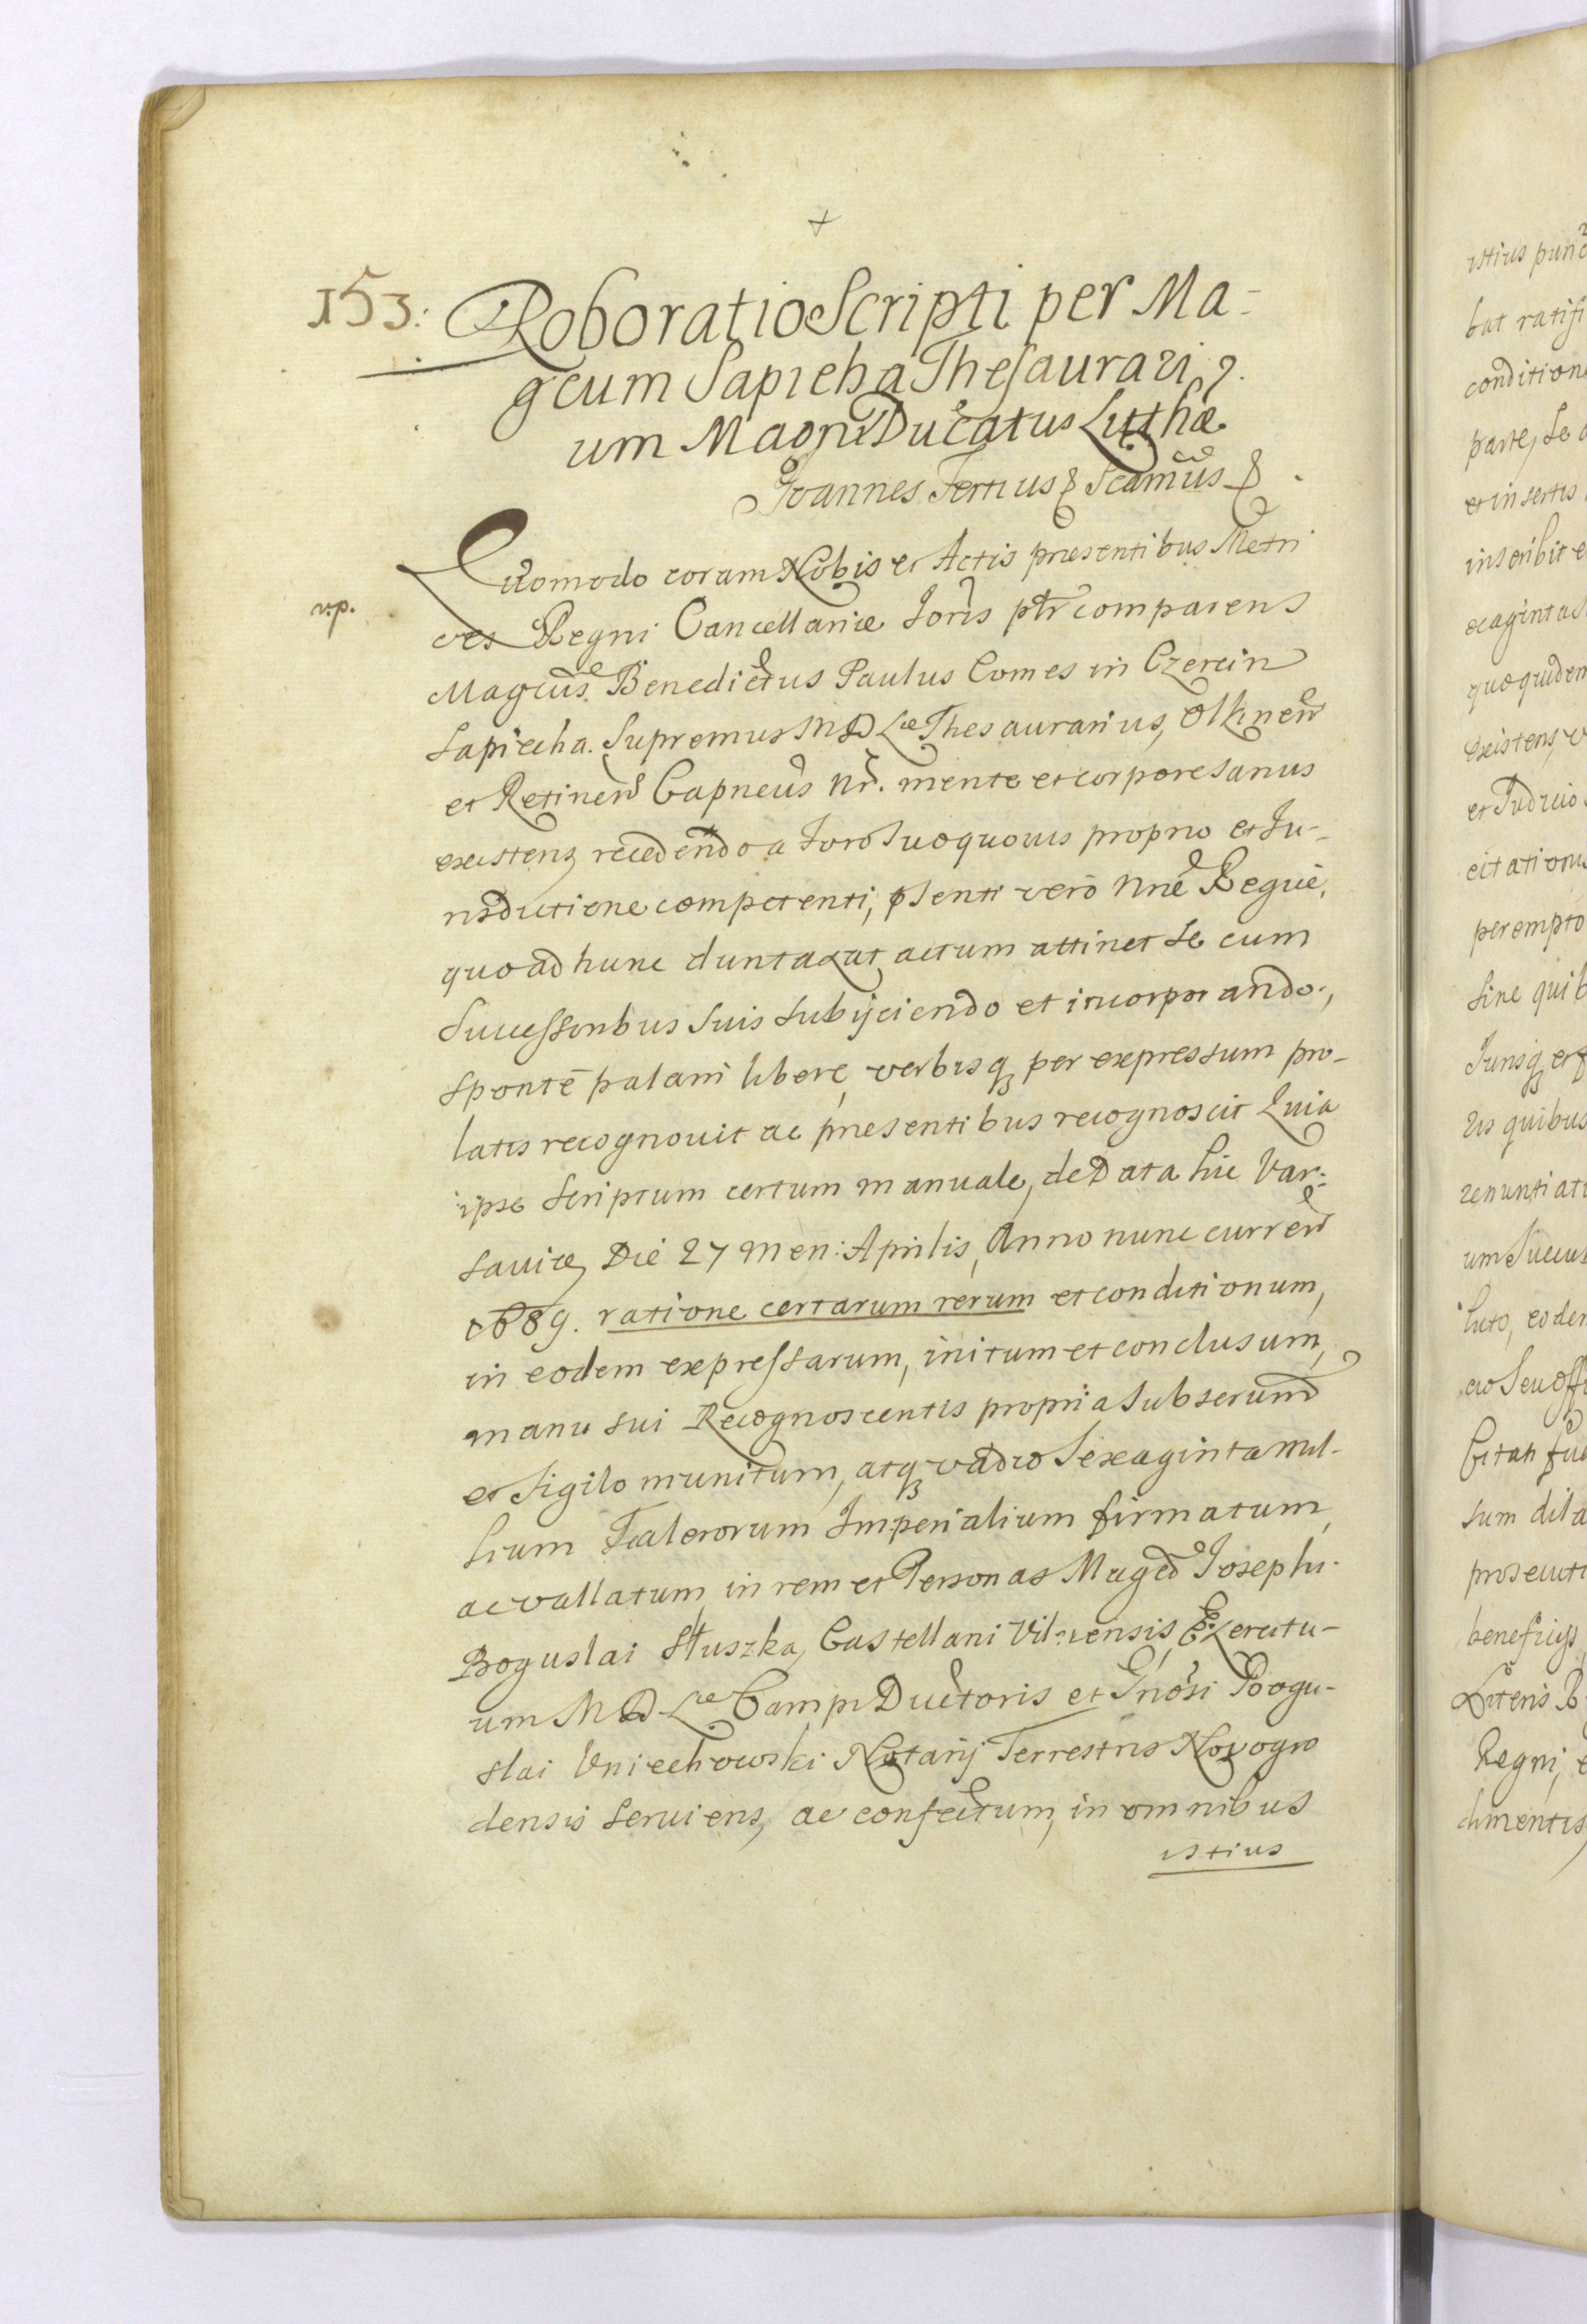 153: Roboratio Scripti per Ma-
gcum Sapieha Thesaurari
um Magni Ducatus Litthæ
Joannes Tertius Scamus
Quomodo coram Nobis et Actis præsentibus Metri
v.p.
ces Regni Cancellariæ Joris ptr comparens
Magcus Benedictus Paulus Comes in Czerein
Sapieha. Supremus M D Læ Thesaurarius, Olkinen
et Retinen Capneus Nr. mente et corpore sanus
existens, recedendo a Foro suo quovis proprio et Ju-
risdictione competenti, psenti vero Nræ Regiæ,
quo ad hunc duntaxat actum attinet se cum
Successoribus suis subijciendo et incorporando,
sponte palam libere, verbisq per expressum pro-
latis recognovit ac præsentibus recognoscit Quia
ipse scriptum certum manuale, de Data hic Var:
saviæ, Die 27 Men: Aprilis, Anno nunc curren
1689. ratione certarum rerum et conditionum,
in eodem expressarum, initum et conclusum,
manu sui Recognoscentis propria subscrum
et Sigilo munitum, atq vadio Sexaginta mil-
lium Talerorum Imperialium firmatum,
ac vallatum, in rem et Personas Magcd Josephi
Boguslai Słuszka, Castellani Vilnensis, Exercitu-
um M D Læ Campi Ductoris et Gnosi Bogu-
slai Uniechowski Notarij Terrestris Novogro
densis serviens, ac confectum, in omnibus
istius
istius pun
bat ratifi
condition
parte, se
et insertis
inscribit e
exaginta
quo quidem
existens, v
et Judicio
citation
perempto
sine quib
Jurisq et
ris quibus
renuntiati
um Succes
luto, eoden
cio seu offi
Citati fu
sum dila
prosecuti
beneficijs
Literis R
Regni, e
dimentis,